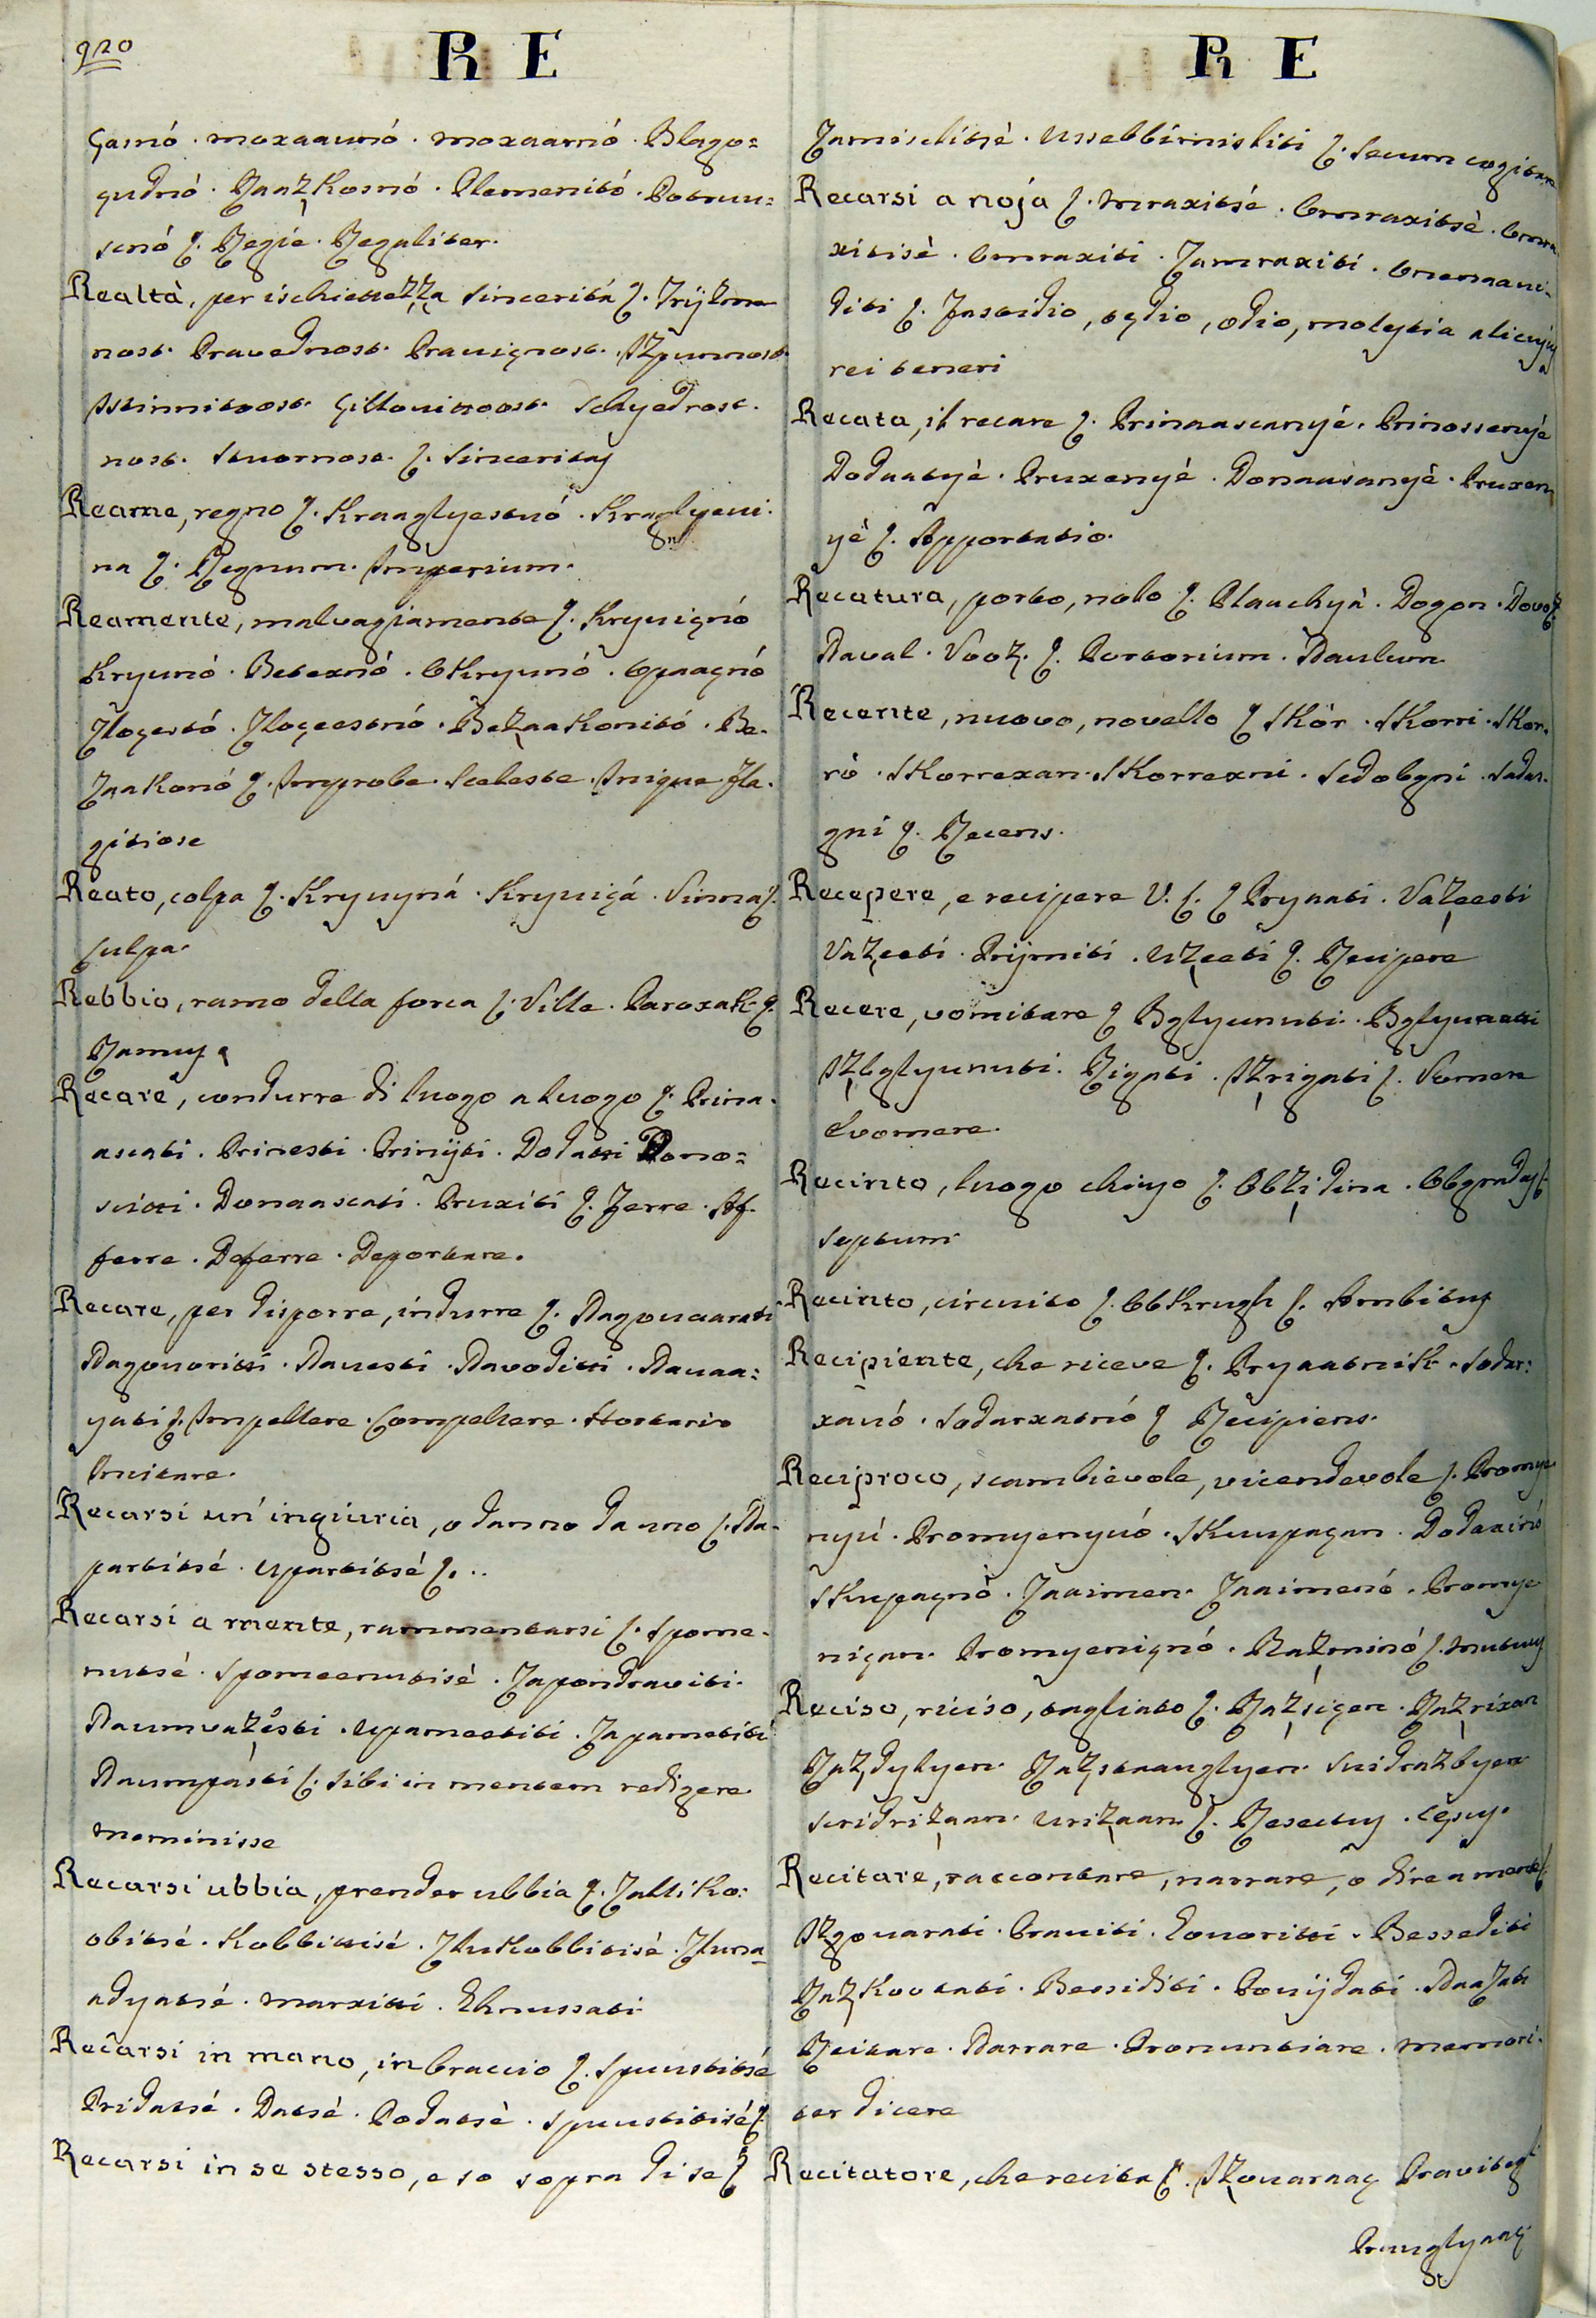 920
R E
çasnó. moxaaunó. moxaarnó. Blago=
gudnó. Raaz̧kosnó. Plemenitó. Potmu=
scnó ſ. Regie. Regaliter.
Realtà, per ischiettez̧z̧a sincerità ſ.
nost. Pravednost. Prauignost. Iz̧punnost.
Istinnitoost. Gittouitoost. Schyedrost.
nost. Stuornost. ſ. Sinceritas
Reame, regno ſ. Kraaglyestuó. Kraglyeui.
na ſ. Regnum. Imperium.
Reamente, malvagiamente ſ. Kryuignó
Kryunó. Betexnó. OKryunó. Opaagnó
Zlogestó. Zloçeestnó. Bez̧aakonitó. Be.
Zaakonó ſ. Improbe. Sceleste. Inique. Fla.
gitiose
Reato, colpa ſ. Kryuyná. Kryuiçá. Vinna ſ.
Culpa.
Rebbio, ramo della forca ſ. Ville. Paroxak. ſ.
Ramus
Recare, condurre di luogo a luogo ſ. Prina.
ascati. Prinesti. Prinijti. Dodatti Dono=
scitti. Donaascati. Pruxiti ſ. Ferre. Af.
ferre. Deferre. Deportare.
Recare, per disporre, indurre ſ. Nagouaarati
Nagouoritti. Nauesti. Navoditti. Nauaa=
yati ſ. Impellere. Compellere. Hortari
Incitare.
Recarsi un' ingiuria, o danno da uno ſ. Na.
partitsé. Upartitsé ſ. ..
Recarsi a mente, rammentarsi ſ. Spome.
nutsé. Spomeenutisè. Zapondraviti.
Naumvaz̧ésti. Upameetiti. Zapametiti
Naumpásti ſ. Sibi in mentem redigere
meminisse
Recarsi ubbia, prender ubbia ſ. Zalliko:
obitsé. Kobbittisé. Zlukobbitisé. Zluna=
adyatsé. marxitti. Ehnussati
Recarsi in mano, in braccio ſ. Spuustitsé
Pridatsé. Datsé. Podatsè. Spuustitisé ſ.
Recarsi in se stesso, e so sopra di se ſ
R E
Zamislitisè. Ussebbirnisliti ſ. Secum cogitare
Recarsi a noja ſ. Mraxitsé. Omraxitsè. Omra
xitisè. Omraxiti. Zamraxiti.
diti ſ. Fastidio, tędio, odio, molestia alicujus
rei teneri
Recata, il recare ſ. Prinaascanyé. Prinossenyé
Dodaatyè. Pruxenyé. Donaasanyè. Pruxen
yè ſ. Apportatio.
Recatura, porto, nolo ſ. Plauchyà. Dogon. Dovoz̧
Naval. Vooz̧. ſ. Portorium. Naulum
Recente, nuovo, novello ſ SKór. SKorri. SKor.
rò. SKorrexan. SKorrexni. Sedobgni. Sadas.
gni ſ. Recens.
Recepere, e recipere V. L. ſ Pryaati. Vaz̧eesti
Vaz̧eeti. Prijmiti. Uz̧eeti ſ. Recipere
Recere, vomitare ſ Bglyuuuti. Bglyuaati
Iz̧bglyuuuti. Rigati. Iz̧rigati ſ. Vomere
Evomere.
Recinto, luogo chiuso ſ. Obz̧idina. Obgrada ſ.
Septum
Recinto, circuito ſ. ObKrugh ſ. Ambitus
Recipiente, che riceve ſ. Pryaatnik. Sodar:
xauó. Sodarxatnó ſ Recipiens.
Reciproco, scambievole, vicendevole ſ. Promye
nyú. Promyenyuó. SKuupaçan. Dodaxinó
SKupagnó. Zaaimen. Zaaimenó. Promye
niçan. Promyenignó. Raz̧minó ſ. Mutuus
Reciso, riciso, tagliato ſ. Raz̧siçen. Raz̧rixan
Raz̧dylyen. Raz̧staauglyen.
Recitare, raccontare, narrare, o dire a mente ſ.
Iz̧gouarati. Prauiti. Gouoritti. Besseditti
Raz̧kootati. Bessiditi. Pouijdati.
Recitare. Narrare. Pronuntiare. memori.
ter dicere
Recitatore, che recita ſ. Iz̧ouaraaç Pravitegl
Praauglyaaç